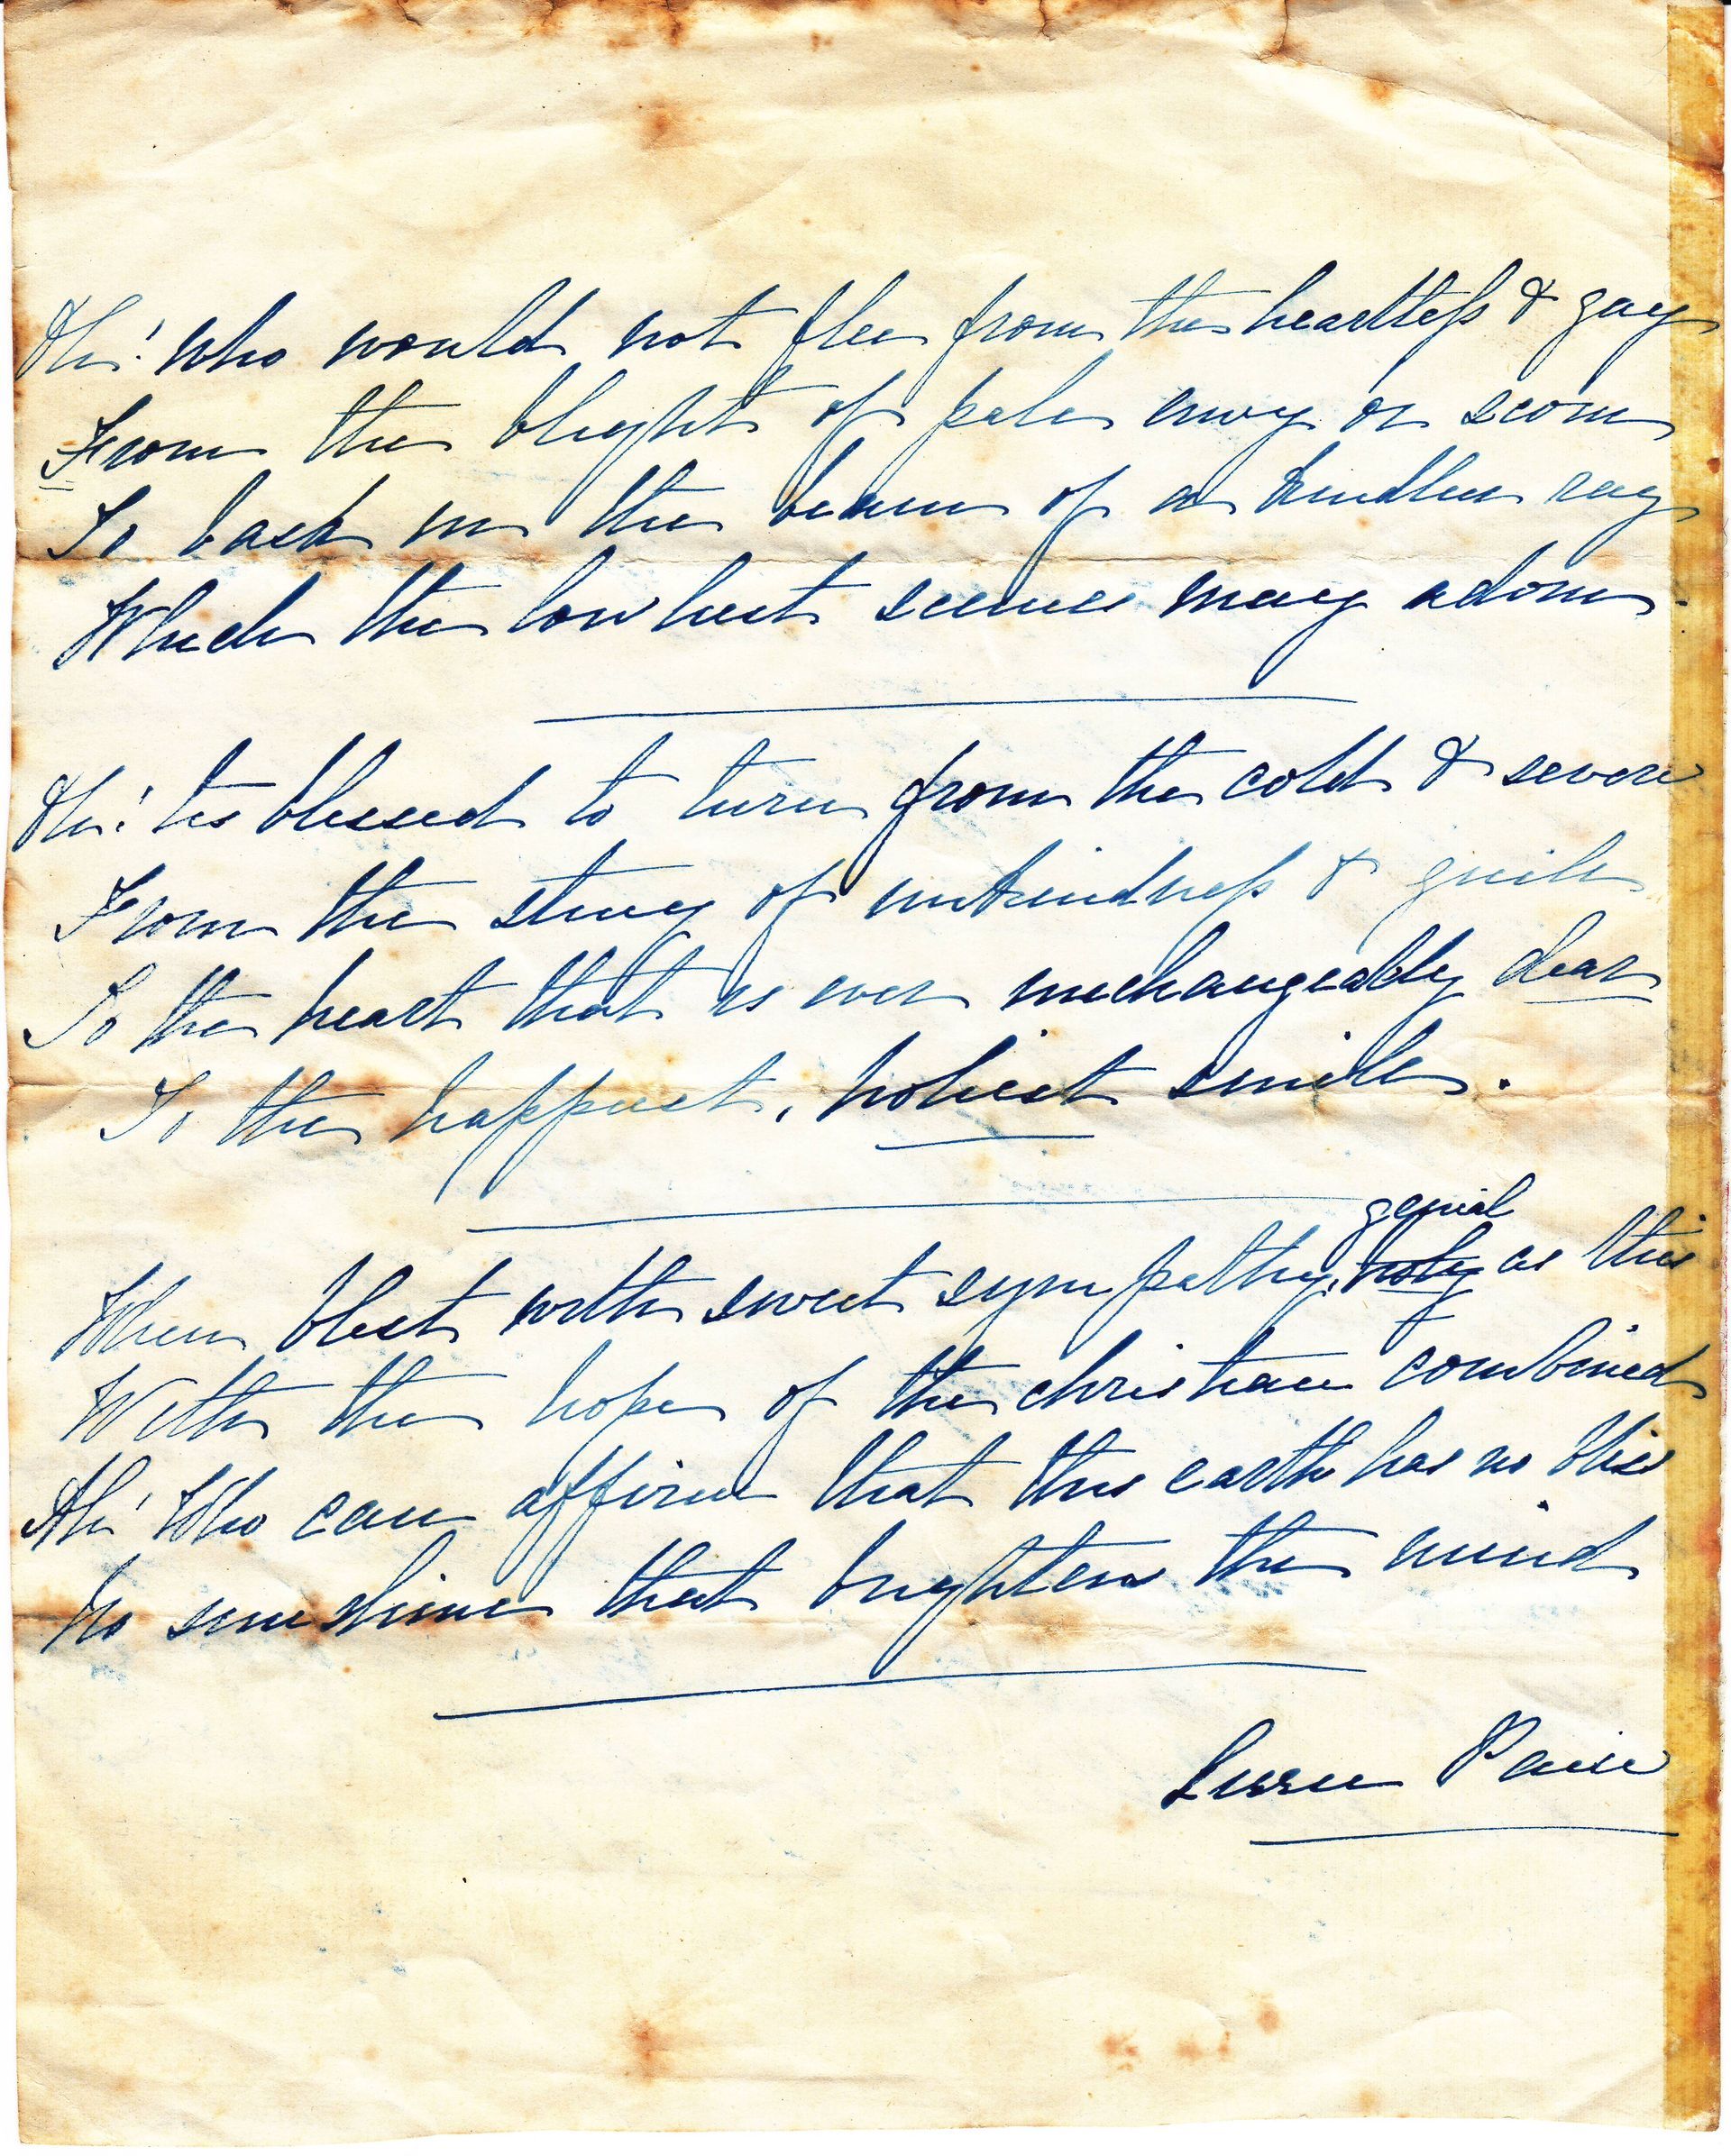 Ah! who would not flee from the heartless & gay
From the blight of pale envy or scorn
To bask in the beam of a kindlier ray
Which the lowliest scenes may adorn.
Ah! tis blessed to turn from the cold & severe
From the sting of unkindness & guile
To the heart that is ever unchangeably dear
To the happiest, holiest smile.
genial
When blest with sweet sympathy, holy as this
With the hope of the christian combined
Ah! Who can affirm that this earth has no bliss
No sunshine that brightens the mind